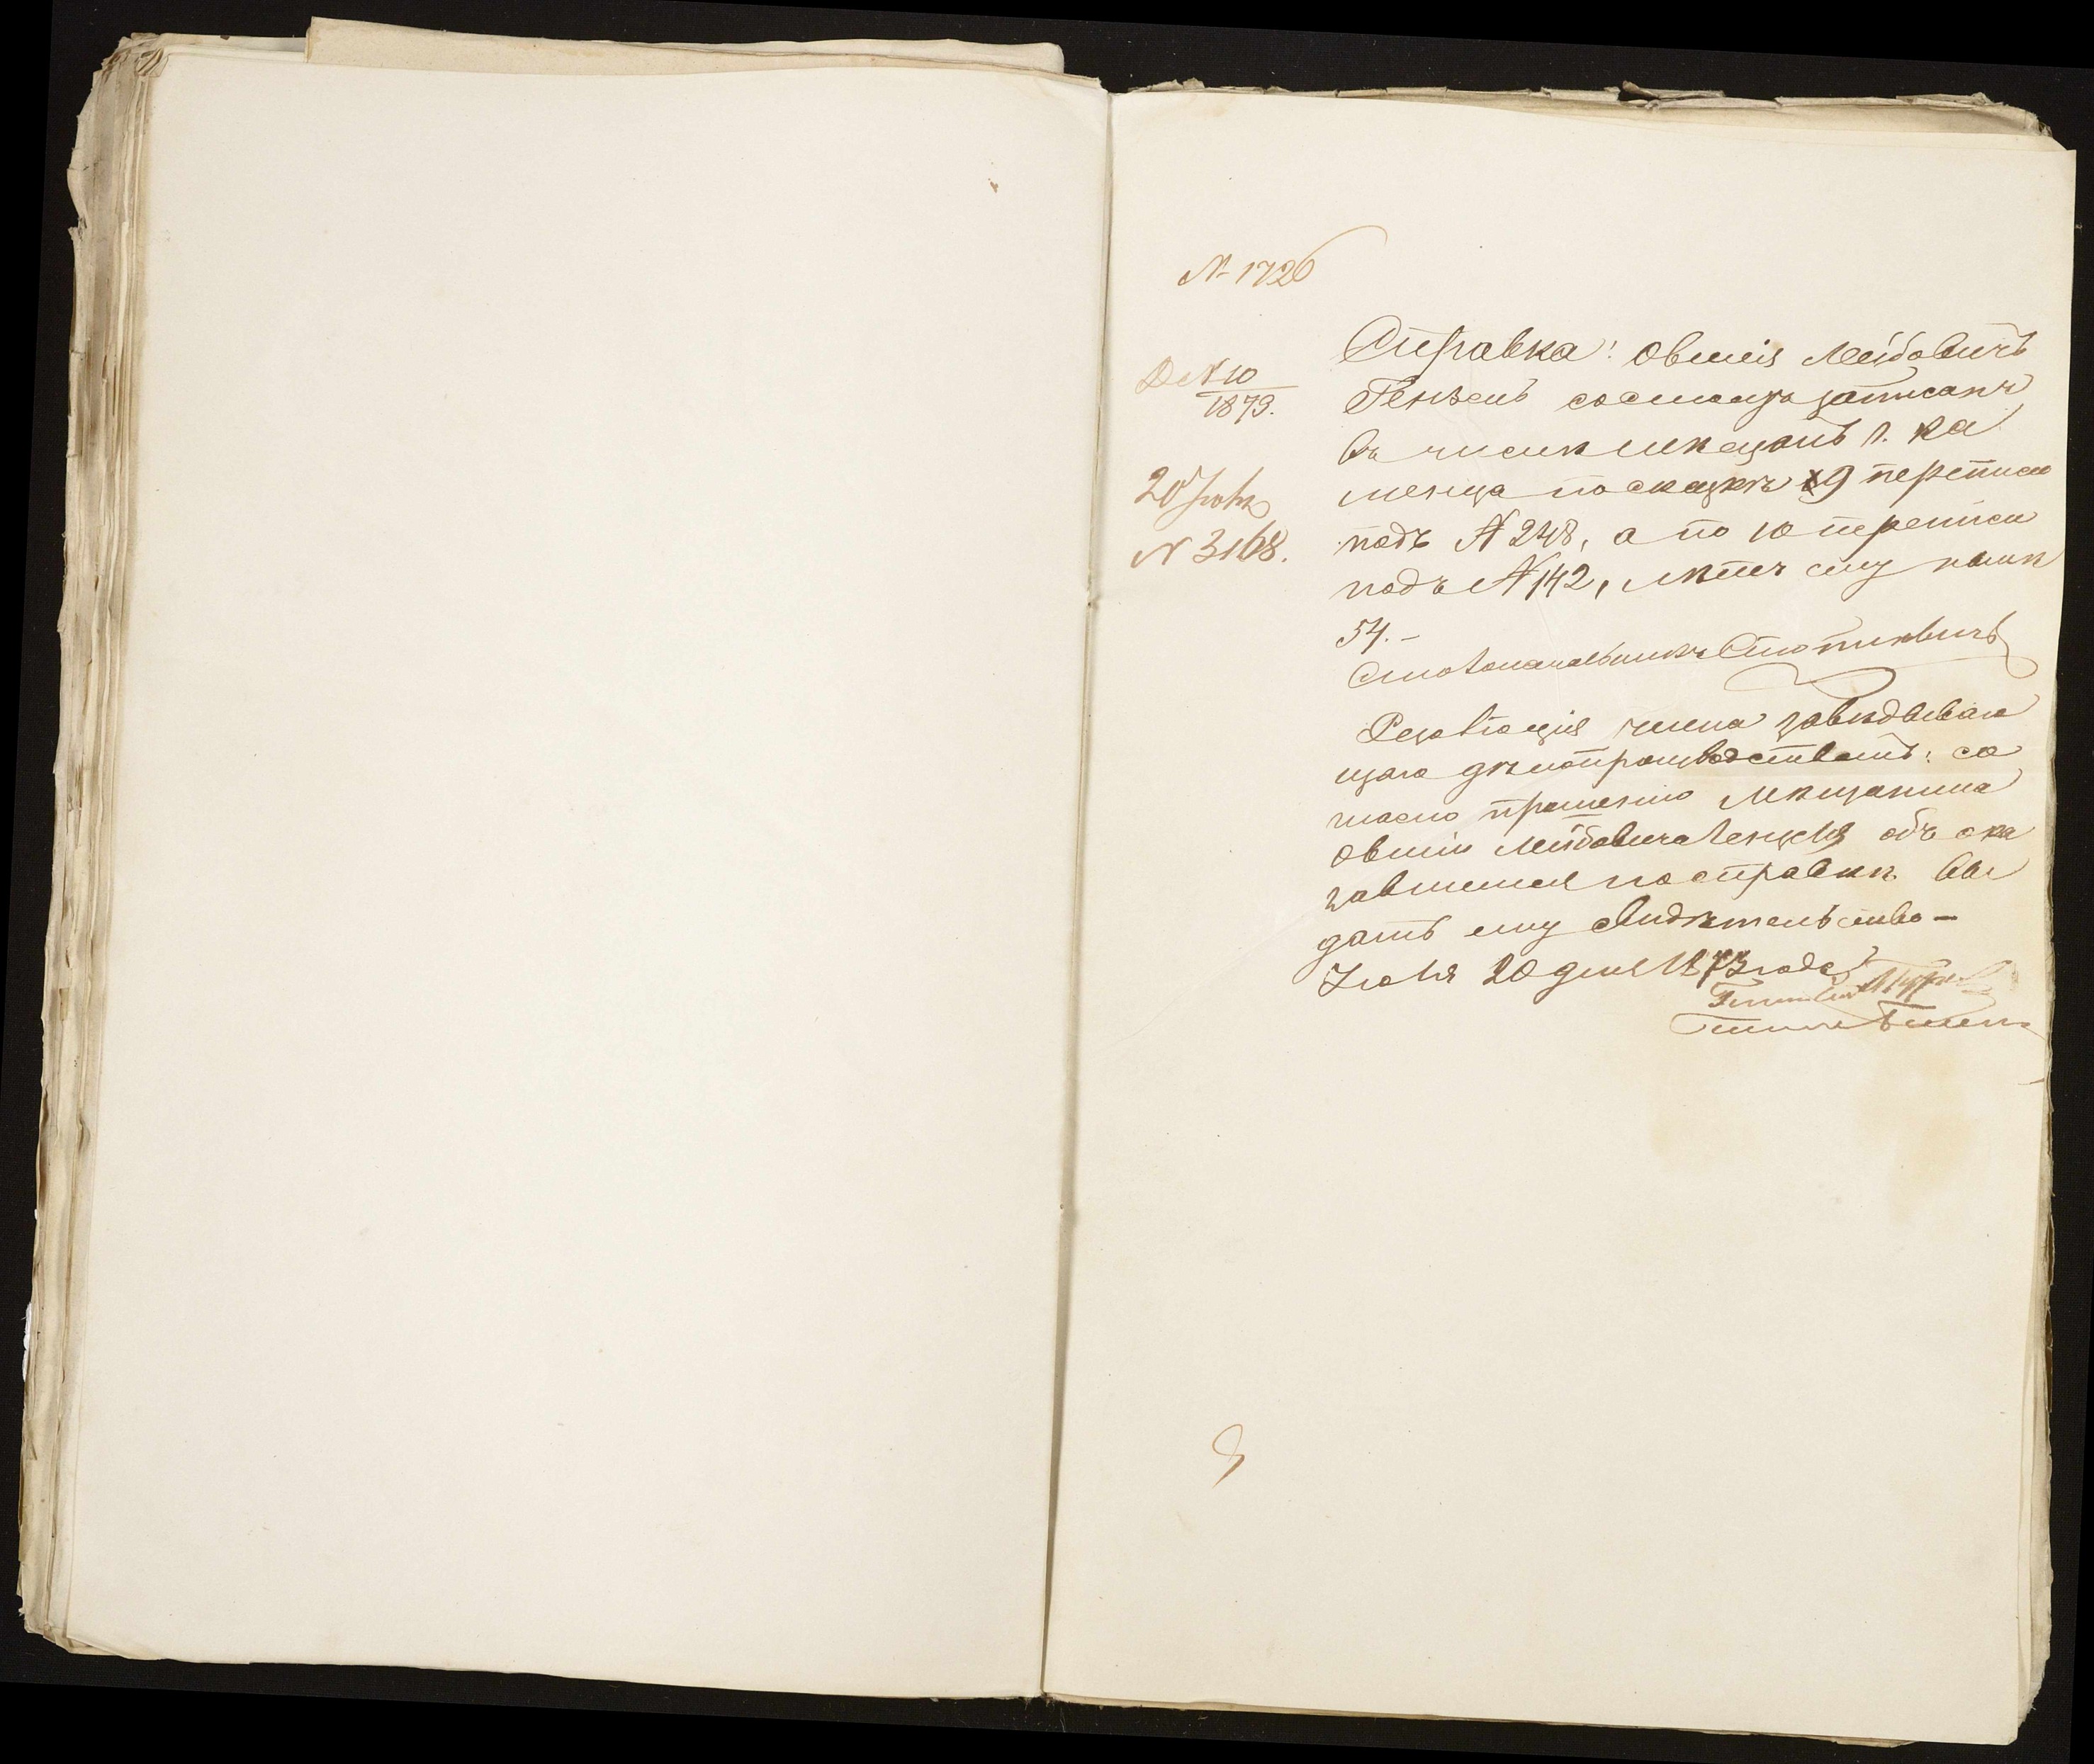 № 1726
Д № 10
1873.
20 Іюля
№ 3168.
Справка: Овшія Лейбовичъ
Гензель состоитъ записанъ
въ числѣ мѣщанъ г. Ка
менца по сказкѣ 9 переписи
подъ № 248, а по 10 переписи
подъ № 142, лѣтъ ему нынѣ
54. –
Столоначальникъ
Резолюція члена завѣдываю
щаго дѣлопроизводствомъ: со
гласно прошенію мѣщанина
Овшіи Лейбовича Гензеля объ ока
завшемся по справкѣ вы
дать ему свидѣтельство –
Іюля 20 дня 1873 года